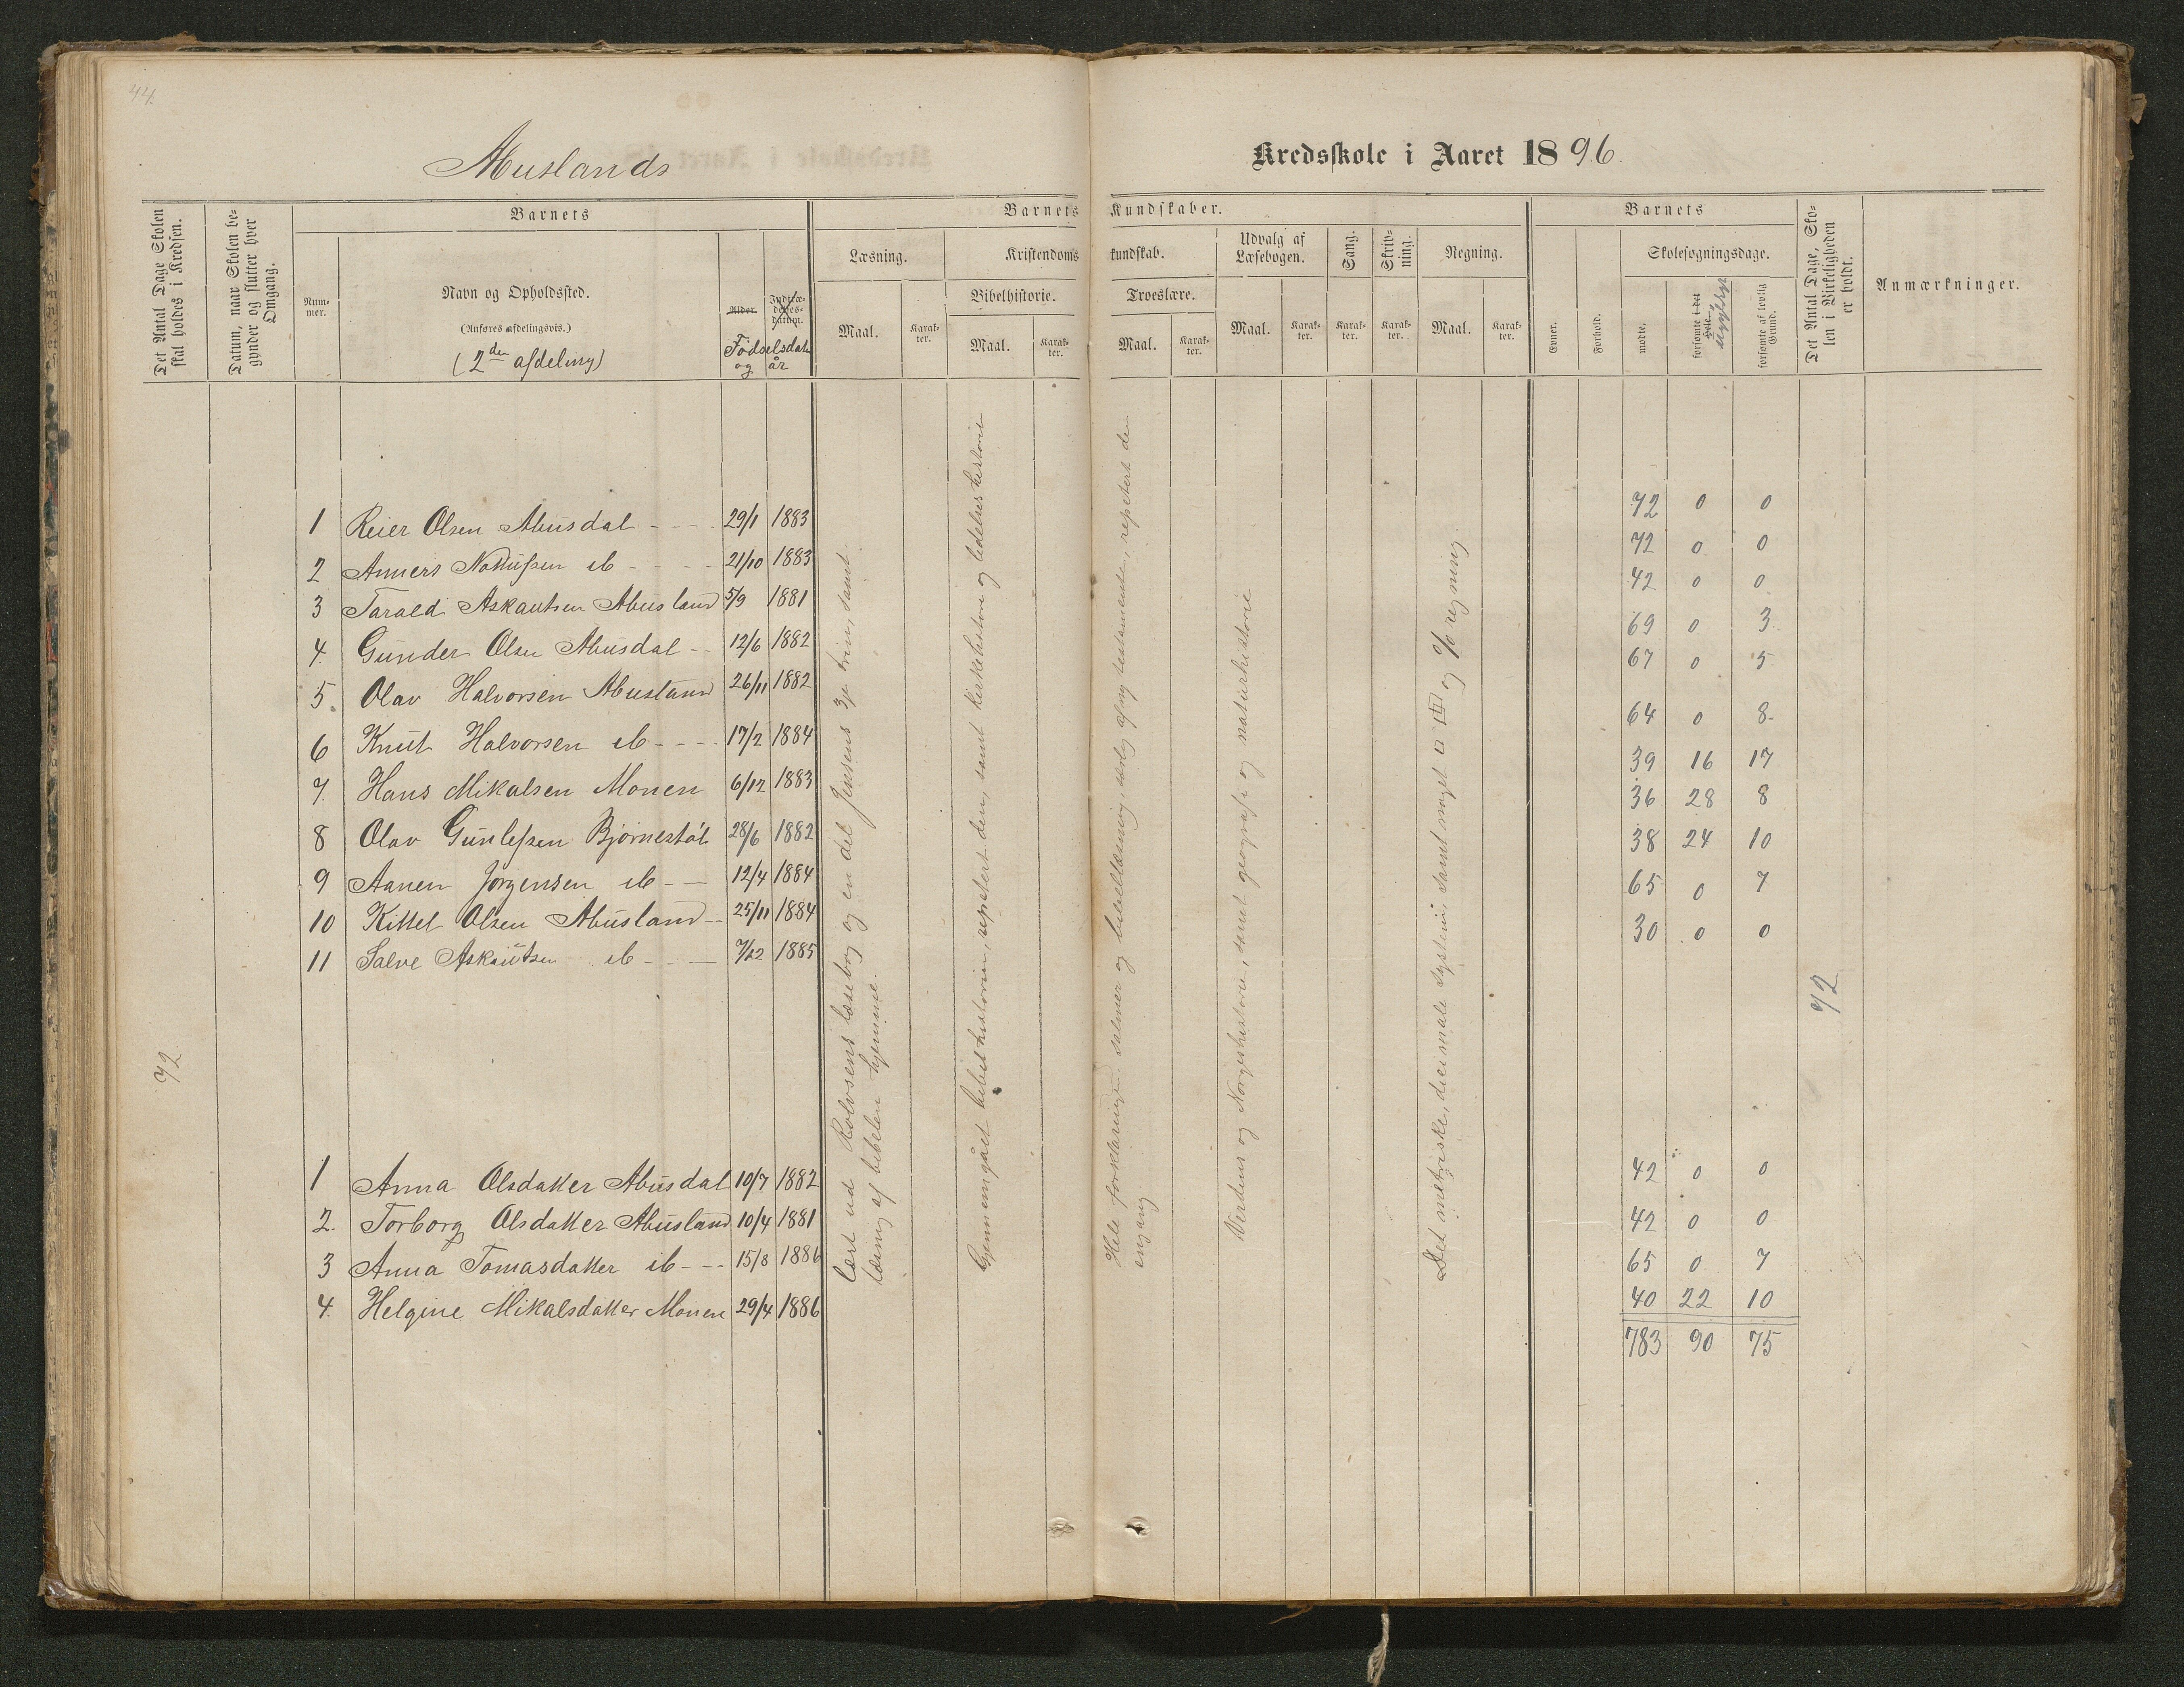 44.
Abuslands
Kredsskole i Aaret 1896.
Det Antal Dage Skolen skal holdes i Kredsen.
Datum, naar Skolen begynder og slutter hver Omgang.
Barnets
Nummer.
Navn og Opholdssted.
(Anføres afdelingsvis.)
(2den afdeling)
Alder.
Indtrædelsesdatum.
Fødselsdato og år
Barnets Kundskaber.
Læsning.
Maal.
Karakter.
Kristendomskundskab.
Bibelhistorie.
Maal.
Karakter.
Troeslære.
Maal.
Karakter.
Udvalg af Læsebogen.
Maal.
Karakter.
Sang.
Karakter.
Skrivning.
Karakter.
Regning.
Maal.
Karakter.
Barnets
Evner.
Forhold.
Skolesøgningsdage.
mødte.
forsømte i det Hele.
sygeligt
forsømte af lovlig Grund.
Det Antal Dage, Skolen i Virkeligheden er holdt.
Anmærkninger.
1 Reier Olsen Abusdal - - - 29/1 1883 72 0 0
2 Anners Nottussen ib - - - - 21/10 1883 72 0 0
3 Tarald Askautsen Abusland 5/9 1881 42 0 0
4. Gunder Olsen Abusdal - - 12/6 1882 69 0 3
5. Olav Halvorsen Abusland 26/11 1882 67 0 5
6 Knut Halvorsen ib - - - - 17/2 1884 64 0 8
7. Hans Mikalsen Monen 6/12 1883 39 16 17
8 Olav Gunlefsen Bjørnestøl 28/6 1882 36 28 8
9 Aanen Jørgensen ib - - 12/4 1884 38 24 10
10 Kittel Olsen Abusland - - 25/11 1884 65 0 7
11 Salve Askautsen ib - - - 7/12 1885 30 0 0
72
72
1 Anna Olsdatter Abusdal 10/7 1882 42 0 0
2. Torborg Olsdatter Abusland 10/4 1881 42 0 0
3 Anna Tomasdatter ib - - - 15/8 1886 65 0 7
4. Helgine Mikalsdatter Monen 29/4 1886 40 22 10
783 90 75
Lært ud Rolvsens læsebog og en del Jensens 3je trin, samt
læsning af bibelen hjemme.
Gjennemgået bibelhistorien, repetert den, samt kirkehistorie og lidelseshistorie
Hele forklaringen salmer og bibellæsning, særlig af ny testamente, repetert den
en gang
Verdens og Norgeshistorie, samt geografi og naturhistorie
Det metriske, decimale system, samt noget og % regning